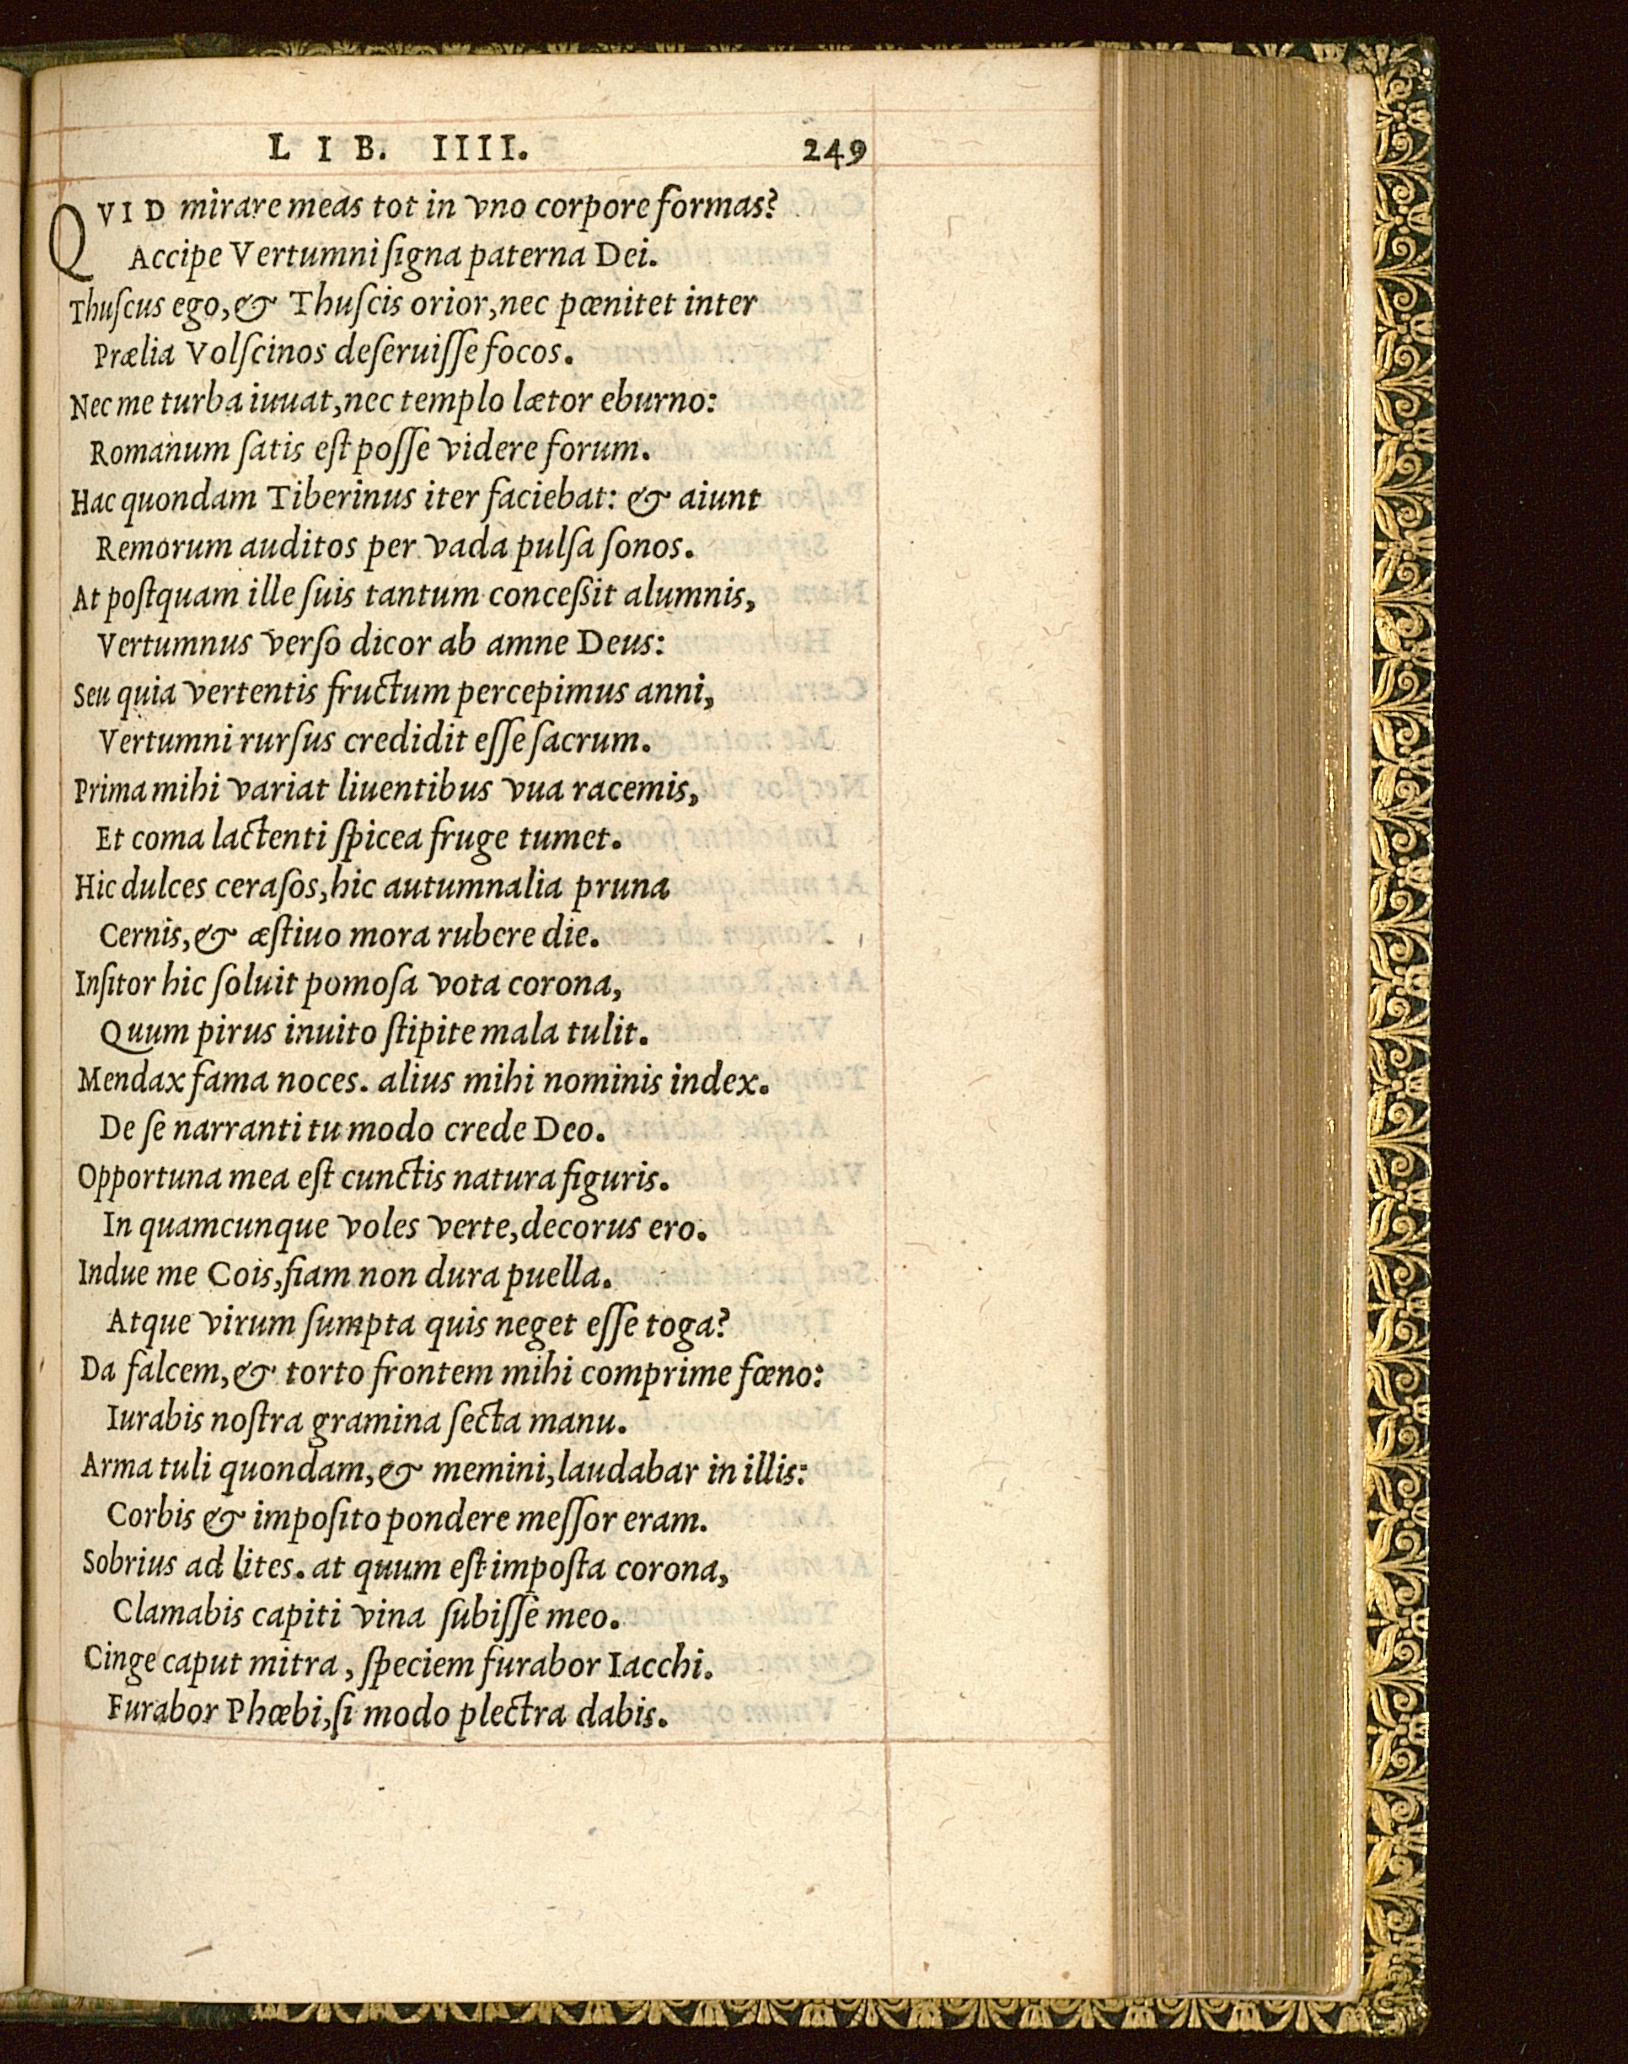 LIB. IIII. 249
QVID mirare meas tot in vno corpore formas?
Accipe Vertumni ſigna paterna Dei.
Thuſcus ego, & Thuſcis orior, nec pœnitet inter
Prælia Volſcinos deſeruiſſe focos.
Nec me turba iuuat, nec templo lætor eburno:
Romanum ſatis eſt poſſe videre forum.
Hac quondam Tiberinus iter faciebat: & aiunt
Remorum auditos per vada pulſa ſonos.
At poſtquam ille ſuis tantum conceßit alumnis,
Vertumnus verſo dicor ab amne Deus:
Seu quia vertentis fructum percepimus anni,
Vertumni rurſus credidit eſſe ſacrum.
Prima mihi variat liuentibus vua racemis,
Et coma lactenti ſpicea fruge tumet.
Hic dulces ceraſos, hic autumnalia pruna
Cernis, & æſtiuo mora rubere die.
Inſitor hic ſoluit pomoſa vota corona,
Quum pirus inuito ſtipite mala tulit.
Mendax fama noces. alius mihi nominis index.
De ſe narranti tu modo crede Deo.
Opportuna mea eſt cunctis natura figuris.
In quamcunque voles verte, decorus ero.
Indue me Cois, fiam non dura puella.
Atque virum ſumpta quis neget eſſe toga?
Da falcem, & torto frontem mihi comprime fœno:
Iurabis noſtra gramina ſecta manu.
Arma tuli quondam, & memini, laudabar in illis:
Corbis & impoſito pondere meſſor eram.
Sobrius ad lites. at quum eſt impoſta corona,
Clamabis capiti vina ſubiſſe meo.
Cinge caput mitra, ſpeciem furabor Iacchi.
Furabor Phœbi, ſi modo plectra dabis.